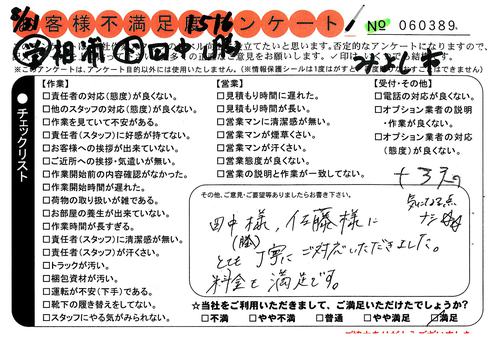 お客様不満足度アンケート!
No 060389
1516
相商 田中
※このアンケートは、アンケート目的以外には使用いたしません。
チェックリスト
【作業】
□責任者の対応(態度)が良くない。
□他のスタッフの対応(態度)が良くない。
□作業を見ていて不安がある。
□責任者(スタッフ)に好感が持てない。
□お客様への挨拶が出来ていない。
□ご近所への挨拶・気遣いが無い。
□作業開始前の内容確認がなかった。
□作業開始時間が遅れた。
□荷物の取り扱いが雑である。
□お部屋の養生が出来ていない。
□作業時間が長すぎる。
□責任者(スタッフ)に清潔感が無い。
□責任者(スタッフ)が汗くさい。
□トラックが汚い。
□梱包資材が汚い。
□運転が不安(下手)である。
□靴下の履き替えをしてない。
□スタッフにやる気がみられない。
【営業】
□見積もり時間に遅れた。
□見積もり時間が長い。
□営業マンに清潔感が無い。
□営業マンが煙草くさい。
□営業マンが汗くさい。
□営業態度が良くない。
□営業の説明と作業が一致してない。
【受付・その他】
□電話の対応が良くない。
□オプション業者の説明
・作業が良くない。
□オプション業者の対応
(態度)が良くない。
その他、ご意見・ご要望等ありましたらお書き下さい。
気になる点
ナシ
田中様、佐藤様に
(勝)
とても丁寧にご対応いただきました。
料金も満足です。
☆当社をご利用いただきまして、ご満足いただけたでしょうか?
□不満 □やや不満 □普通 □やや満足 □満足